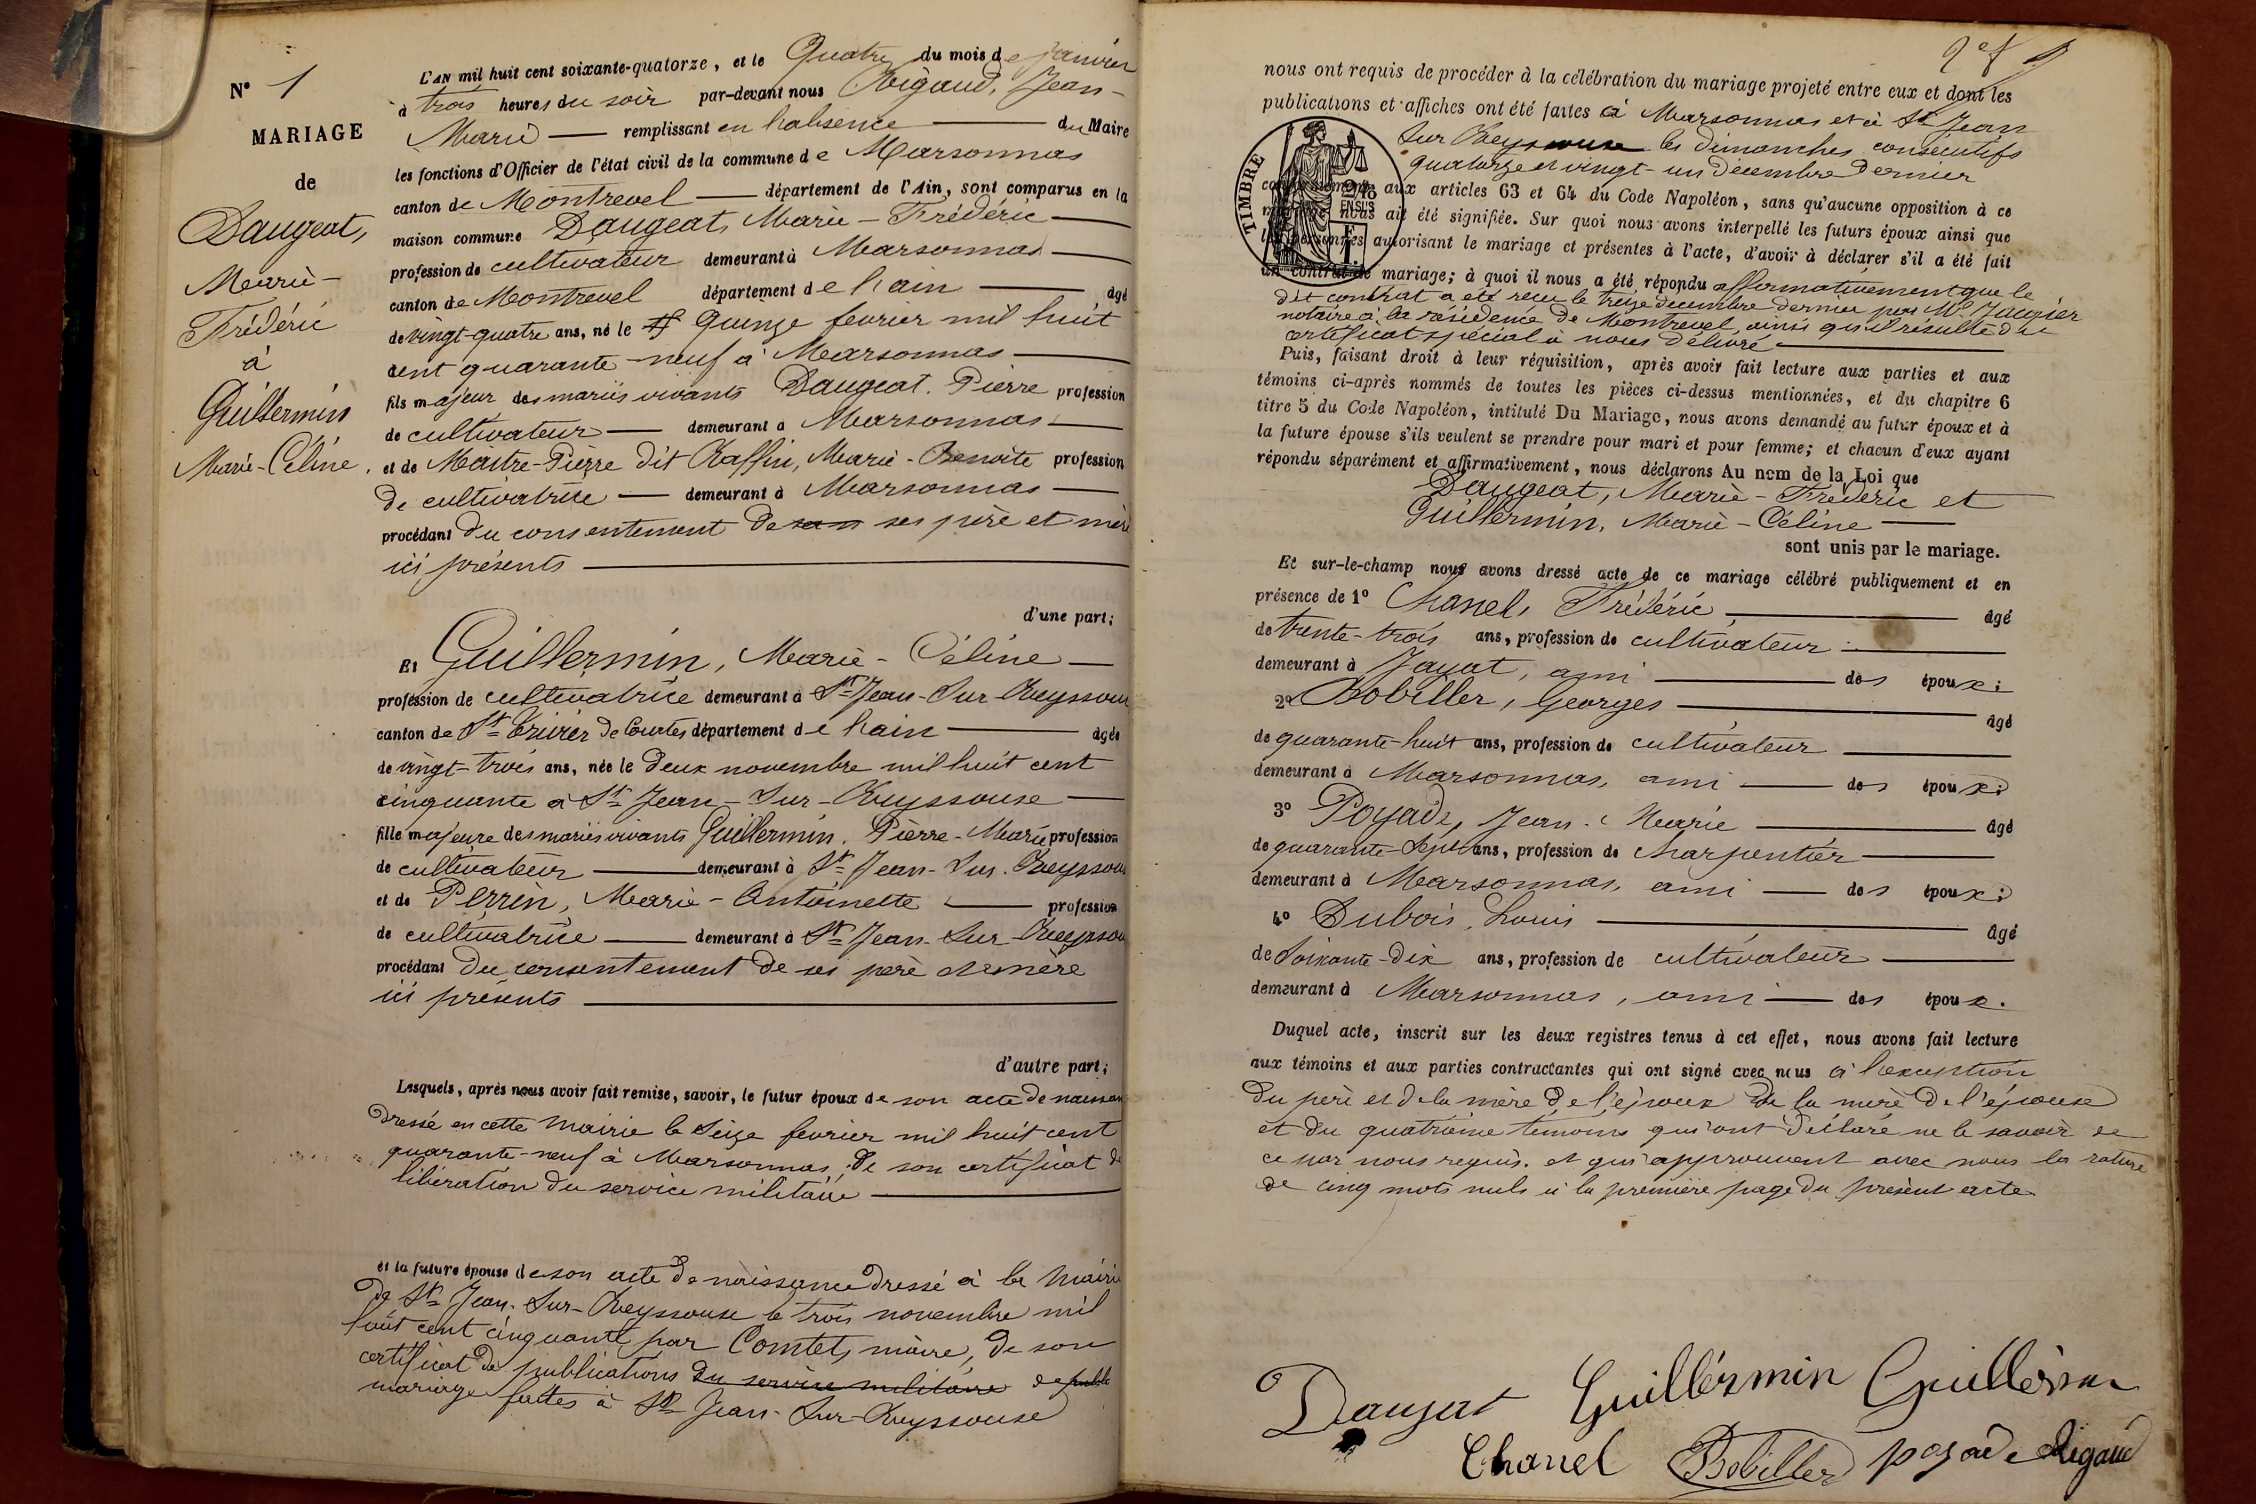 N° 1
MARIAGE
de
Daugeat,
Marie-
Frédéric
à
Guillermin
Marie-Céline.
L'AN mil huit cent soixante-quatorze, et le Quatre du mois de janvier
à trois heures du soir par-devant nous Rigaud, Jean-
Marie — remplissant en l'absence — du Maire
les fonctions d'Officier de l'état civil de la commune de Marsonnas
canton de Montrevel — département de l'Ain, sont comparus en la
maison commune Daugeat, Marie-Frédéric —
profession de cultivateur demeurant à Marsonnas —
canton de Montrevel département de l'ain — âgé
de vingt-quatre ans, né le Quinze fevrier mil huit
cent quarante-neuf à Marsonnas —
fils majeur des mariés vivants Daugeat. Pierre profession
de cultivateur — demeurant à Marsonnas —
et de Maitre-Pierre dit Raffin, Marie-Benoite profession
de cultivatrice — demeurant à Marsonnas —
procédant du consentement de ses père et mère
ici présents —
d'une part;
Et Guillermin, Marie-Céline —
profession de cultivatrice demeurant à St Jean-Sur-Reyssouze
canton de St Trivier de Courtes département de l'ain — âgée
de vingt-trois ans, née le deux novembre mil huit cent
cinquante à St Jean-Sur-Reyssouse —
fille majeure des mariés vivants Guillermin. Pierre-Marie profession
de cultivateur — demeurant à St Jean-Sur-Reyssou
et de Perrin, Marie-Antoinette — profession
de cultivatrice — demeurant à St Jean-Sur-Reyssou
procédant du consentement de ses père et mère
ici présents —
d'autre part;
Lesquels, après nous avoir fait remise, savoir, le futur époux de son acte de naissan
dressé en cette mairie le Seize fevrier mil huit cent
quarante-neuf à Marsonnas, de son certificat de
libération du service militaire —
et la future épouse de son acte de naissance dressé à la mairie
de St Jean-Sur-Reyssouse le trois novembre mil
huit cent cinquante par Comtet, maire, de son
certificat de publications du service militaire de publi
mariage faites à St Jean-Sur-Reyssouse
2e f
nous ont requis de procéder à la célébration du mariage projeté entre eux et dont les
publications et affiches ont été faites à Marsonnas et à St Jean
Sur Reyssouse les dimanches consécutifs
quatorze et vingt-un décembre dernier
conformément aux articles 63 et 64 du Code Napoléon, sans qu'aucune opposition à ce
mariage nous ait été signifiée. Sur quoi nous avons interpellé les futurs époux ainsi que
les personnes autorisant le mariage et présentes à l'acte, d'avoir à déclarer s'il a été fait
un contrat de mariage; à quoi il nous a été répondu affirmativement que le
dit contrat a été reçu le treize décembre dernier par Me
notaire à la résidence de Montrevel, ainsi qu'il résulte du
certificat spécial à nous délivré —
TIMBRE
Puis, faisant droit à leur réquisition, après avoir fait lecture aux parties et aux
témoins ci-après nommés de toutes les pièces ci-dessus mentionnées, et du chapitre 6
titre 5 du Code Napoléon, intitulé Du Mariage, nous avons demandé au futur époux et à
la future épouse s'ils veulent se prendre pour mari et pour femme; et chacun d'eux ayant
répondu séparément et affirmativement, nous déclarons Au nom de la Loi que
Daugeat, Marie-Frédéric et
Guillermin, Marie-Céline —
sont unis par le mariage.
Et sur-le-champ nous avons dressé acte de ce mariage célébré publiquement et en
présence de 1° Chanel, Frédéric, — âgé
de trente-trois ans, profession de cultivateur —
demeurant à Jayat, ami — des époux;
2° Bobiller, Georges — âgé
de quarante-huit ans, profession de cultivateur —
demeurant à Marsonnas, ami — des époux;
3° Poyade, Jean-Marie — âgé
de quarante-Sept ans, profession de charpentier —
demeurant à Marsonnas, ami — des époux;
4° Dubois, Louis — âgé
de Soixante-dix ans, profession de cultivateur —
demeurant à Marsonnas, ami — des époux.
Duquel acte, inscrit sur les deux registres tenus à cet effet, nous avons fait lecture
aux témoins et aux parties contractantes qui ont signé avec nous à l'exception
du père et de la mère de l'époux de la mère de l'épouse
et du quatrième témoins qui ont déclaré ne le savoir de
ce par nous requis. et qui approuvent avec nous la rature
de cinq mots nuls à la première page du présent acte
Daujat Guillérmin Guillermin
Chanel Bobiller poyade Rigaud